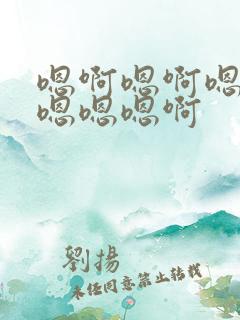 嗯啊嗯啊嗯
嗯嗯嗯啊
劉揚
未经同意禁止转载